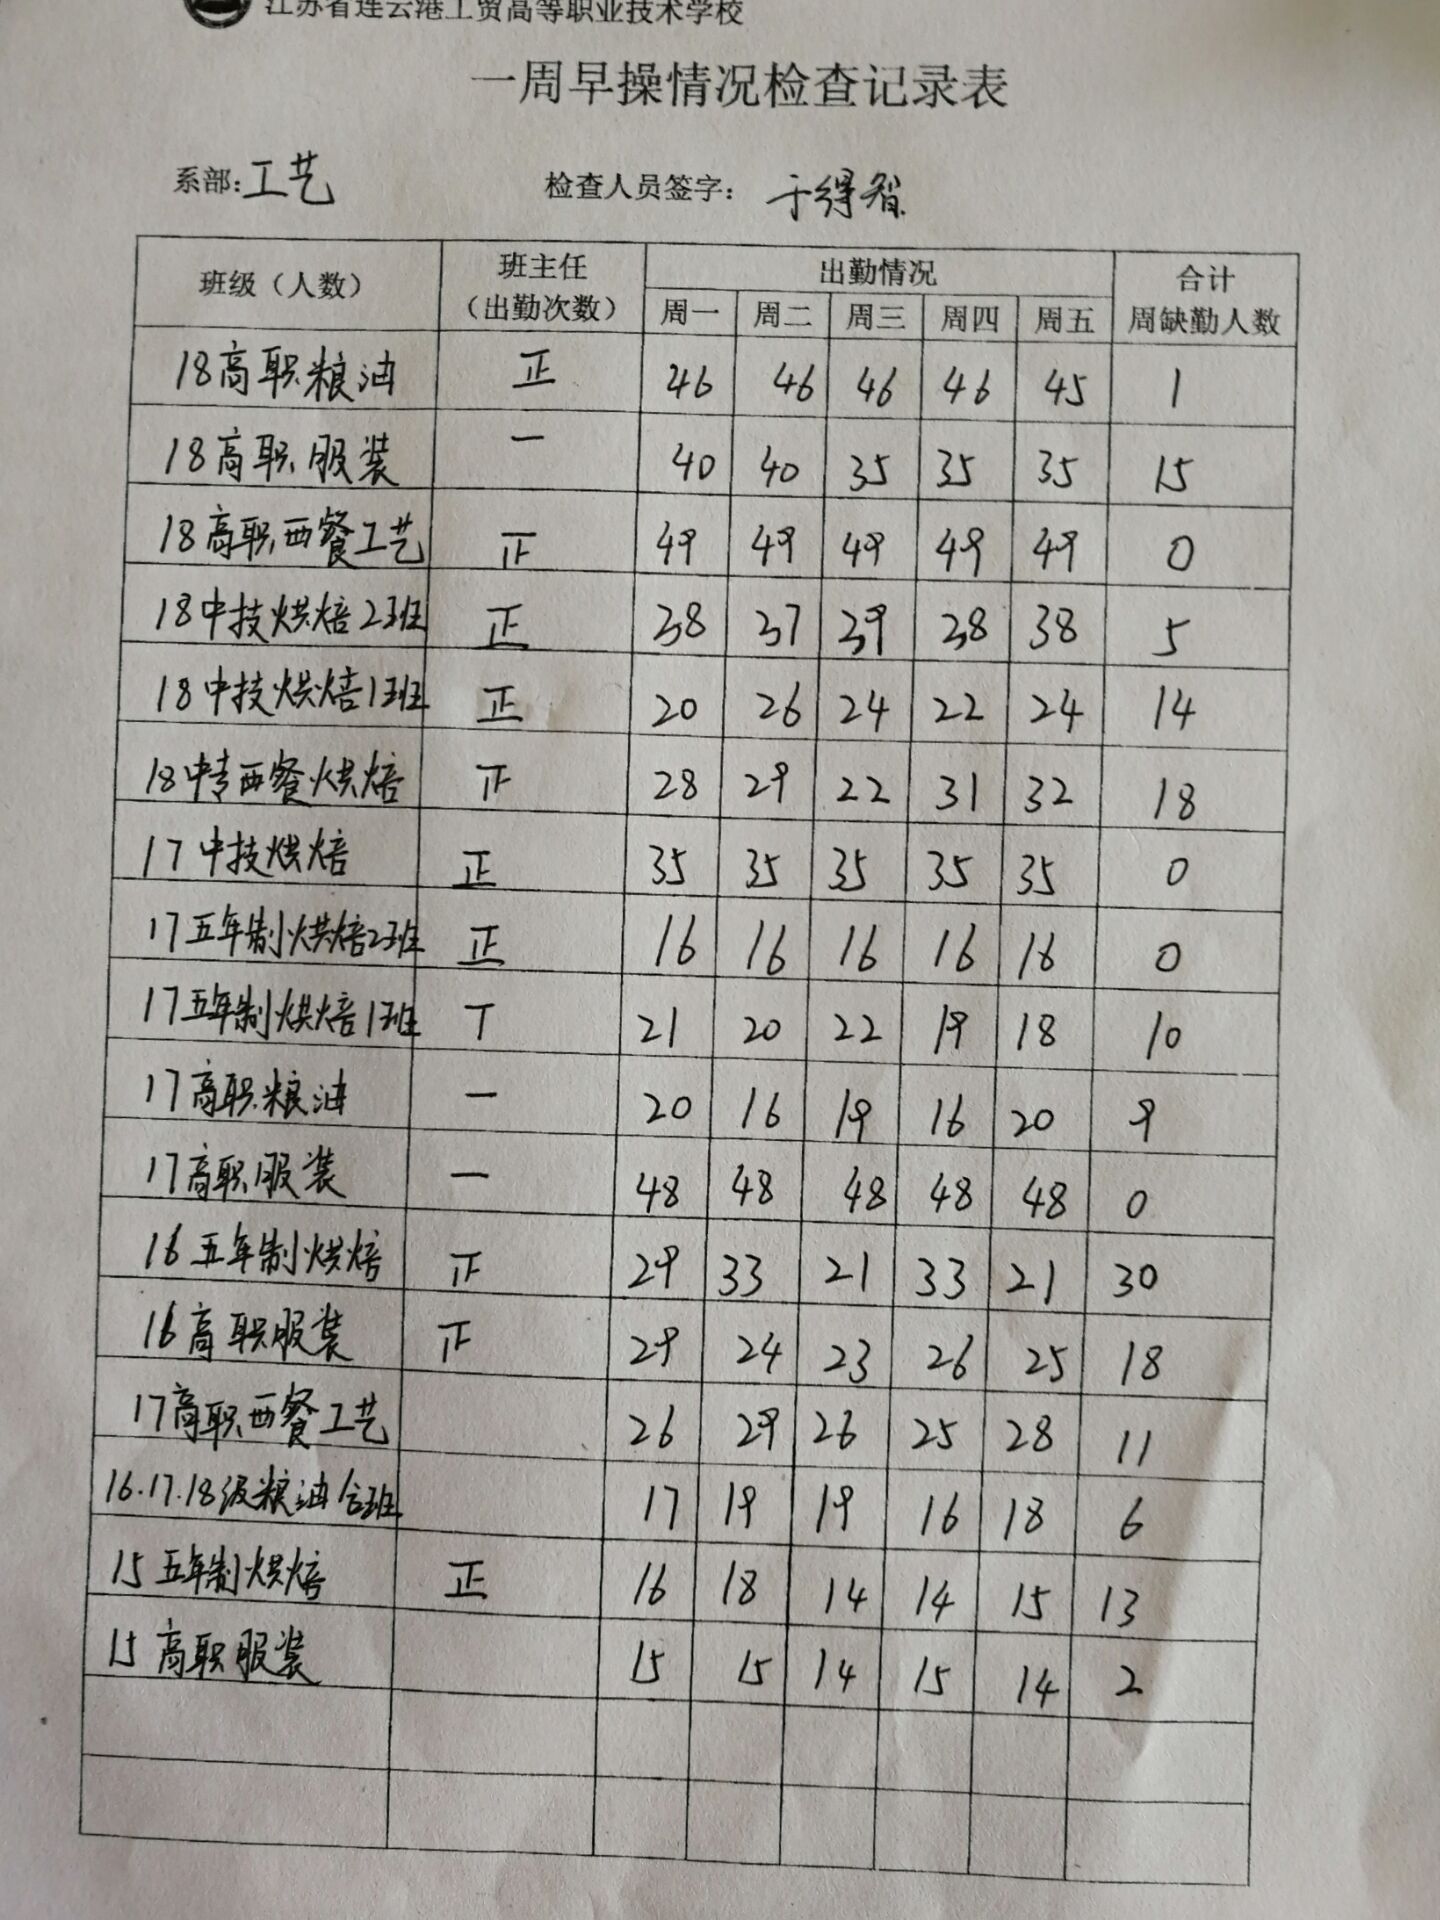 江苏省连云港工贸高等职业技术学校
一周早操情况检查记录表
系部:工艺 检查人员签字: 于得智
班级（人数） 班主任（出勤次数） 出勤情况 合计
周一 周二 周三 周四 周五 周缺勤人数
18高职粮油 正 46 46 46 46 45 1
18高职服装 一 40 40 35 35 35 15
18高职西餐工艺 正 49 49 49 49 49 0
18中技烘焙2班 正 38 37 39 38 38 5
18中技烘焙1班 正 20 26 24 22 24 14
18中专西餐烘焙 正 28 29 22 31 32 18
17中技烘焙 正 35 35 35 35 35 0
17五年制烘焙2班 正 16 16 16 16 16 0
17五年制烘焙1班 丅 21 20 22 19 18 10
17高职粮油 一 20 16 19 16 20 9
17高职服装 一 48 48 48 48 48 0
16五年制烘焙 正 29 33 21 33 21 30
16高职服装 正 29 24 23 26 25 18
17高职西餐工艺 26 29 26 25 28 11
16.17.18级粮油合班 17 19 19 16 18 6
15五年制烘焙 正 16 18 14 14 15 13
15高职服装 15 15 14 15 14 2